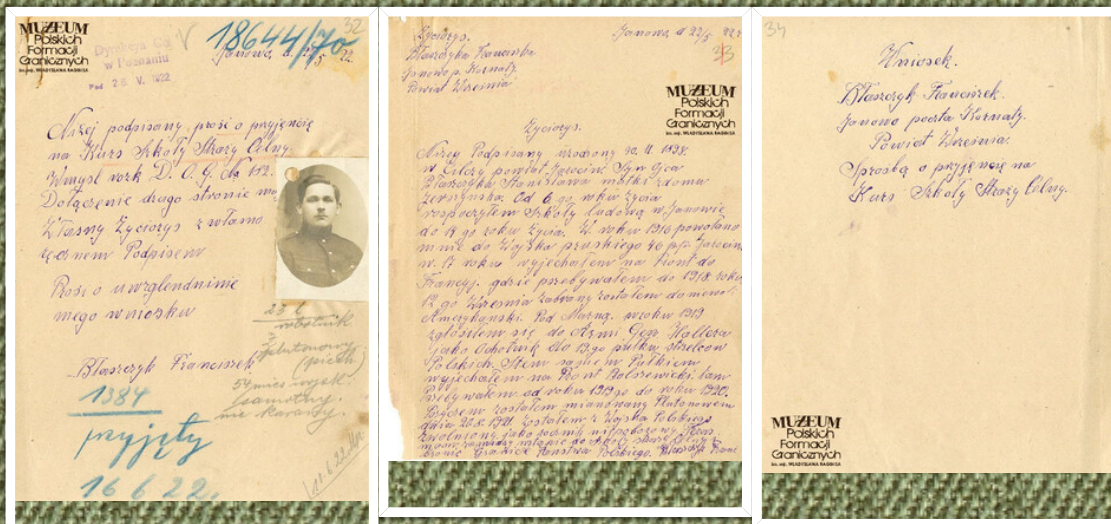 MUZEUM
Polskich
Formacji
Granicznych
im. mjr. WŁADYSŁAWA RAGINISA
Dyrekcya Ceł
w Poznaniu
26 V. 1922
18644/70
32
Janowo, d. 22/5 22.
Niżej podpisany prosi o przyjęncie
na Kurs Szkoły Straży Celny.
Wmysl rozk D. O. G. No 152.
Dołączenie drugo stronie mą
Własny Życiorys z własno
ręcznem Podpisem
Prosi o uwzglendninie
mego wniosku
Błaszczyk Franciszek
robotnik
plutonowy
(piech)
54 mies wojsk.
samotny.
nie karany.
1384
przyjęty
16 6 22.
Życiorys.
Błaszczyka Franciszka
Janowo p. Kornaty
Powiat Września
Janowo, d 22/5 22
33
MUZEUM
Polskich
Formacji
Granicznych
im. mjr. WŁADYSŁAWA RAGINISA
Życiorys.
Niżey Podpisany urodzony 30. 11. 1898.
w Cilczy powiat Jarocin Syn Ojca
Błaszczyka Stanisława matki zdomu
Od 6-go roku życia
rospoczytem Szkoły ludową w Janowie
do 14 go roku Życia. W roku 1916 powołano
mnie do Wojska pruskiego 46 p.p. Jarocin
w. 17 roku wyjechałem na Front do
Francyj. gdzie przebywałem do 1918. roku
12 go Września zabrany zostałem do niewol.
Amerykanski. Pod wroku 1919
zgłosiłem się do Armi Gen. Hallera
jako Ochotnik do 13-go pułku strzelcow
Polskich. Stem samem Pułkiem
wyjechałem na Front Bolszewicki tam
Przebywałem od roku 1919 go do roku 1920.
zostałem mianowany Plutonowem
dnia 20.8. 1921. Zostałem z Wojska Polskiego
zwolniony jako rocznik
do Szkoły straży Celny
bronic Granick Państwa Polskiego. Błaszczyk Franc
34
Wniosek.
Błaszczyk Franciszek.
Janowo poczta Kornaty.
Powiat Września.
Sprosbą o przyjęncie na
Kurs Szkoły Straży Celny.
MUZEUM
Polskich
Formacji
Granicznych
im. mjr. WŁADYSŁAWA RAGINISA